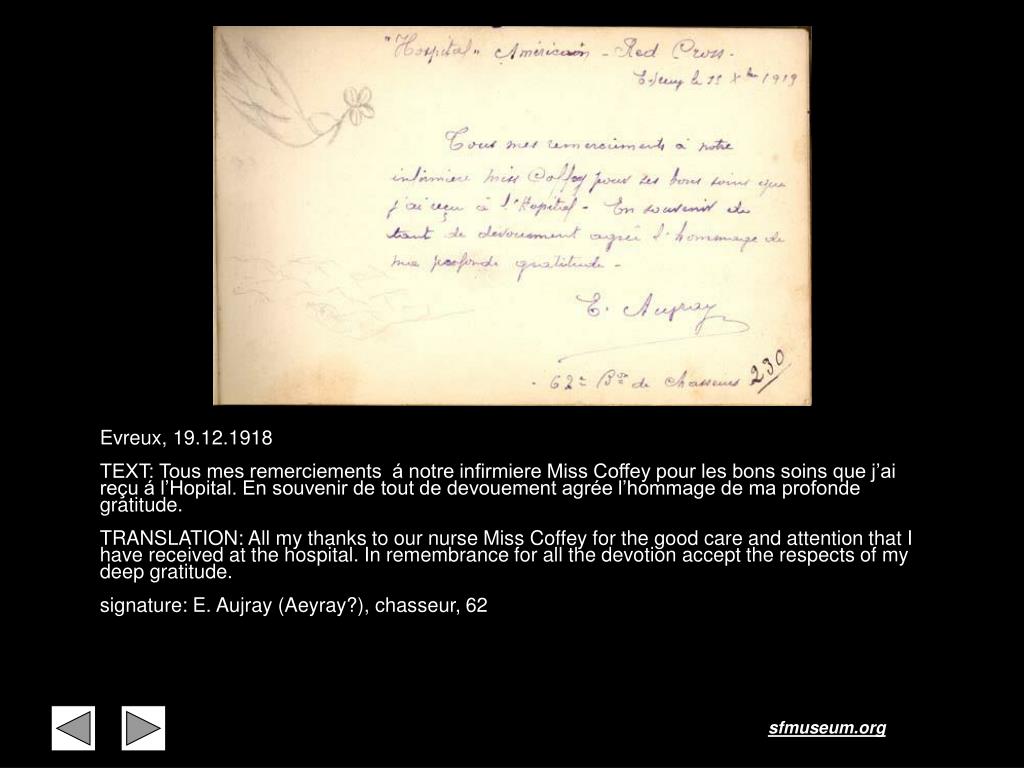 "Hospital" Américain - Red Cross -
le 1919
Tous mes remerciements à notre
infirmière Miss Coffey pour ses bons soins que
j'ai reçu à l'Hopital - En souvenir de
tant de dévouement agréé l'hommage de
ma profonde gratitude -
E. Aujray
62e Bon de Chasseurs
230
Evreux, 19.12.1918
TEXT: Tous mes remerciements  á notre infirmiere Miss Coffey pour les bons soins que j'ai
reçu á l'Hopital. En souvenir de tout de devouement agrée l'hommage de ma profonde
gratitude.
TRANSLATION: All my thanks to our nurse Miss Coffey for the good care and attention that I
have received at the hospital. In remembrance for all the devotion accept the respects of my
deep gratitude.
signature: E. Aujray (Aeyray?), chasseur, 62
sfmuseum.org